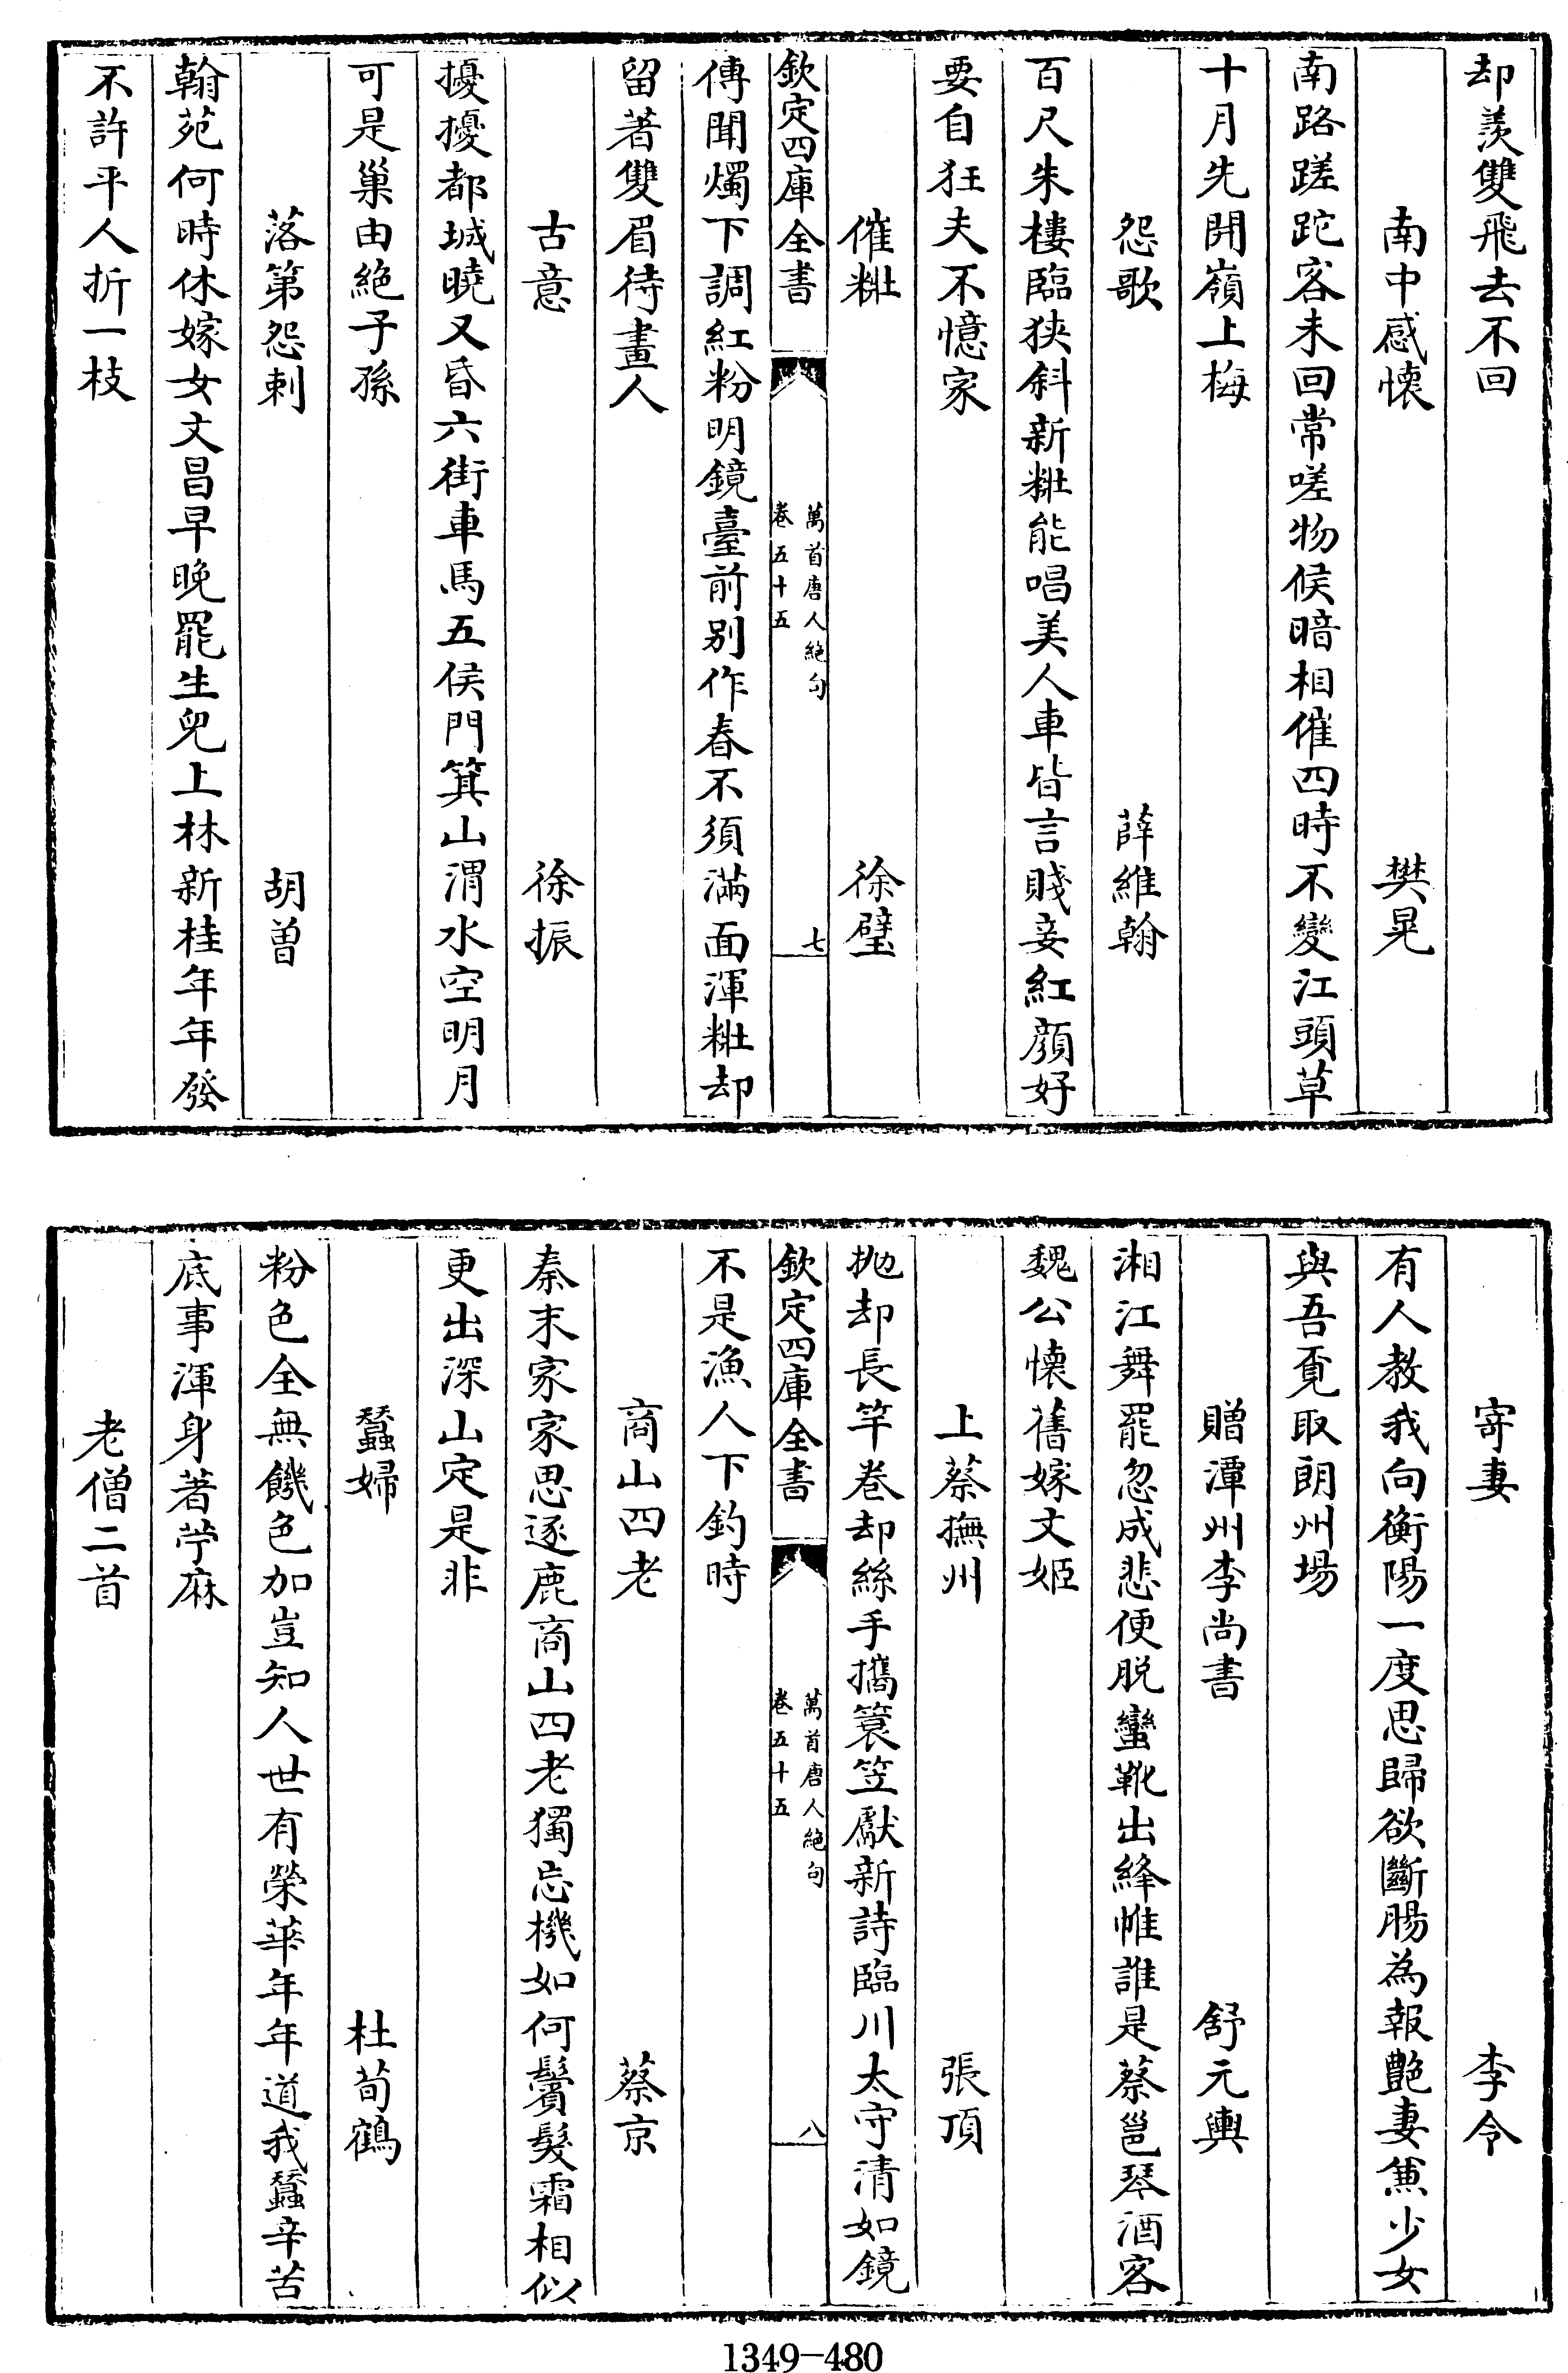 却羨雙飛去不回
南中感懷 樊晃
南路蹉跎客未回常嗟物候暗相催四時不變江頭草
十月先開嶺上梅
怨歌 薛維翰
百尺朱樓臨狹斜新粧能唱美人車皆言賤妾紅顔好
要自狂夫不憶家
催粧 徐璧
欽定四庫全書 萬首唐人絶句 卷五十五 七
傳聞燭下調紅粉明鏡臺前别作春不須滿面渾粧却
留著雙眉待畫人
古意 徐振
擾擾都城曉又昏六街車馬五侯門箕山渭水空明月
可是巢由絶子孫
落第怨刺 胡曽
翰苑何時休嫁女文昌早晚罷生兒上林新桂年年發
不許平人折一枝
寄妻 李令
有人教我向衡陽一度思歸欲斷腸為報艶妻兼少女
與吾覔取朗州場
贈潭州李尚書 舒元輿
湘江舞罷忽成悲便脱蠻靴出絳帷誰是蔡邕琴酒客
魏公懷舊嫁文姬
上蔡撫州 張頂
抛却長竿卷却絲手攜簑笠獻新詩臨川太守清如鏡
欽定四庫全書 萬首唐人絶句 卷五十五 八
不是漁人下釣時
商山四老 蔡京
秦末家家思逐鹿商山四老獨忘機如何鬢髮霜相似
更出深山定是非
蠶婦 杜荀鶴
粉色全無饑色加豈知人世有榮華年年道我蠶辛苦
底事渾身著苧麻
老僧二首
1349-480